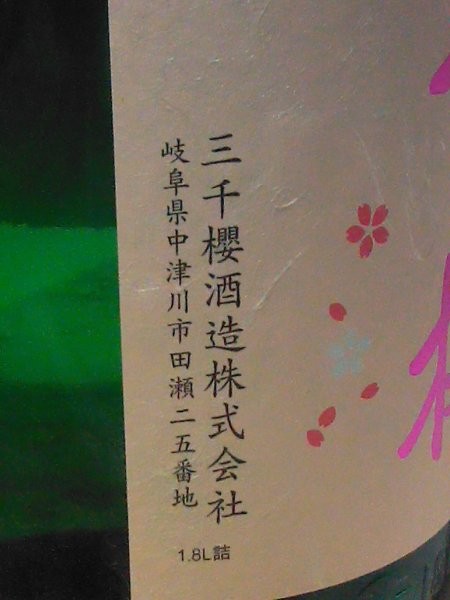 三千櫻酒造株式会社
岐阜県中津川市田瀬二五番地
1.8L詰